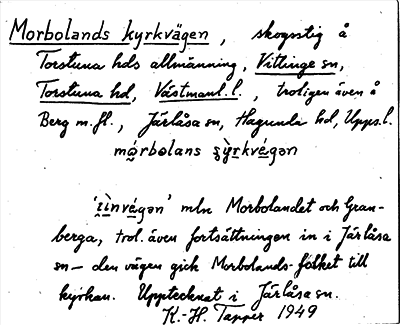 Morbolands kyrkvägen, skogsstig å
Torstuna hds allmänning, Vittinge sn,
Torstuna hd, Västmanl. l., troligen även å
Berg m. fl., Järlåsa sn, Hagunda hd, Upps. l.
mǫ́rbolans
'
mln Morbolandet och Gran-
berga, trol. även fortsättningen in i Järlåsa
sn – den vägen gick Morbolands-folket till
kyrkan. Upptecknat i Järlåsa sn.
K.-H. Tapper 1949